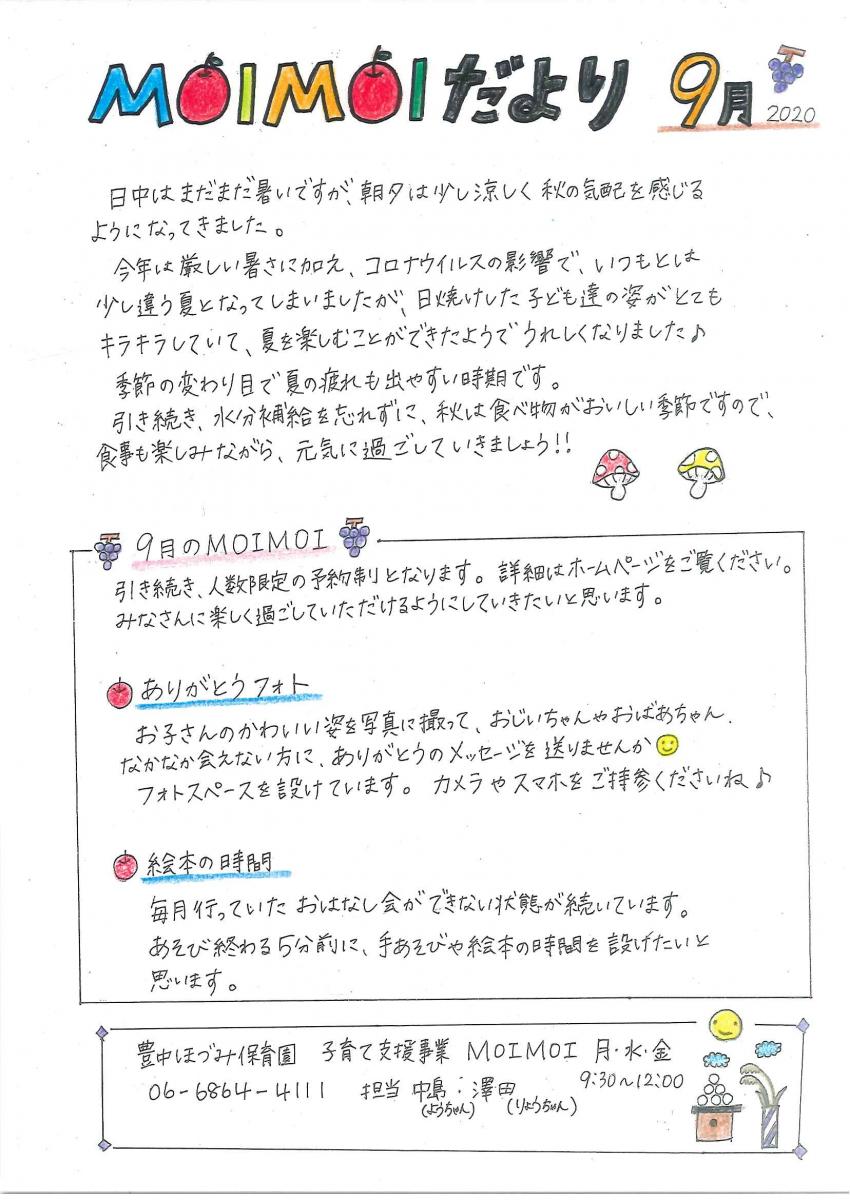 MOIMOIだより 9月 2020
日中はまだまだ暑いですが、朝夕は少し涼しく秋の気配を感じる
ようになってきました。
今年は厳しい暑さに加え、コロナウイルスの影響で、いつもとは
少し違う夏となってしまいましたが、日焼けした子ども達の姿がとても
キラキラしていて、夏を楽しむことができたようでうれしくなりました♪
季節の変わり目で夏の疲れも出やすい時期です。
引き続き、水分補給を忘れずに、秋は食べ物がおいしい季節ですので、
食事も楽しみながら、元気に過ごしていきましょう!!
9月のMOIMOI
引き続き、人数限定の予約制となります。詳細はホームページをご覧ください。
みなさんに楽しく過ごしていただけるようにしていきたいと思います。
ありがとうフォト
お子さんのかわいい姿を写真に撮って、おじいちゃんやおばあちゃん、
なかなか会えない方に、ありがとうのメッセージを送りませんか
フォトスペースを設けています。カメラやスマホをご持参くださいね♪
絵本の時間
毎月行っていたおはなし会ができない状態が続いています。
あそび終わる5分前に、手あそびや絵本の時間を設けたいと
思います。
豊中ほづみ保育園 子育て支援事業 MOIMOI 月・水・金
06-6864-4111 担当 中島・澤田 9:30~12:00
(ようちゃん) (りょうちゃん)